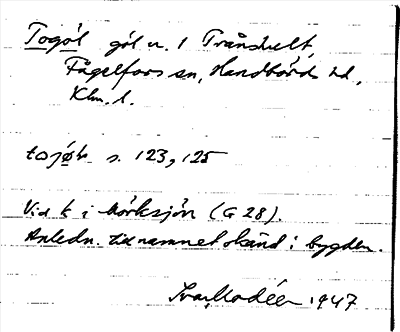 Togöl göl n. 1 Trånshult,
Fågelfors sn, Handbörds hd,
Klm. l.
s. 123, 125
Vid k i Mörksjön (G 28).
Anledn. till namnet okänd i bygden.
Ivar Modéer 1947